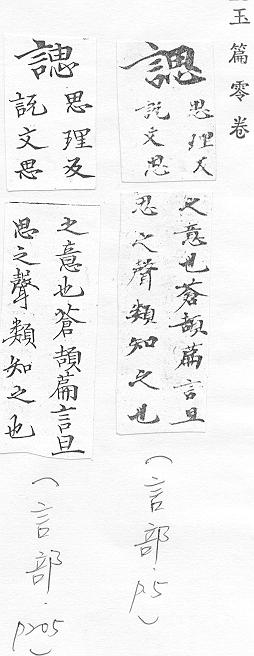 玉篇零卷
諰
思理反
說文思
之意也蒼頡篇言旦
思之聲類知之也
(言部.p5)
諰
思理反
說文思
之意也蒼頡篇言旦
思之聲類知之也
(言部.p205)